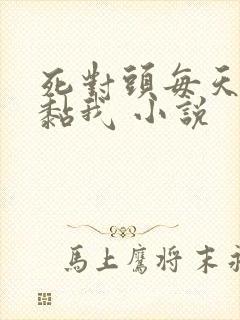 死對頭每天
黏我 小說
馬上鷹将末